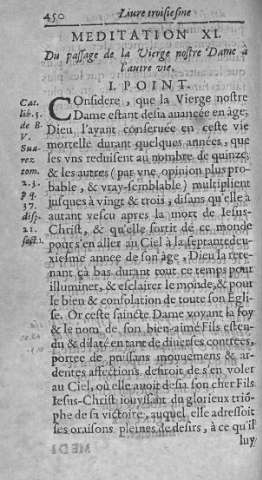 450 Liure troisiesme
MEDITATION XI.
Du passage de la Vierge nostre Dame à
l'autre vie.
I. POINT.
COnsidere, que la Vierge nostre
Dame estant desia auancée en âge,
Dieu l'ayant conseruée en ceste vie
mortelle durant quelques années, que
les vns reduisent au nombre de quinze;
& les autres (par vne opinion plus pro-
bable, & vray-semblable) multiplient
jusques à vingt & trois, disans qu'elle a
autant vescu apres la mort de Iesus-
Christ, & qu'elle sortit de ce monde
pour s'en aller au Ciel à la septantedeu-
xiesme année de son âge, Dieu la rete-
nant çà bas durant tout ce temps pour
illuminer, & esclairer le monde, & pour
le bien & consolation de toute son Egli-
se. Or ceste saincte Dame voyant la foy
& le nom de son bien-aimé Fils esten-
du & dilaté en tant de diuerses contrées,
portée de puissans mouuemens & ar-
dentes affections, desiroit de s'en voler
au Ciel, où elle auoit desia son cher Fils
Iesus-Christ iouyssant du glorieux trio-
phe de sa victoire, auquel elle adressoit
ses oraisons pleines de desirs, à ce qu'il
luy
Cat.
lib. 5.
de B.
V.
Sua-
rez
tom.
2. 3.
p q.
37.
disp.
21.
sect. 1.